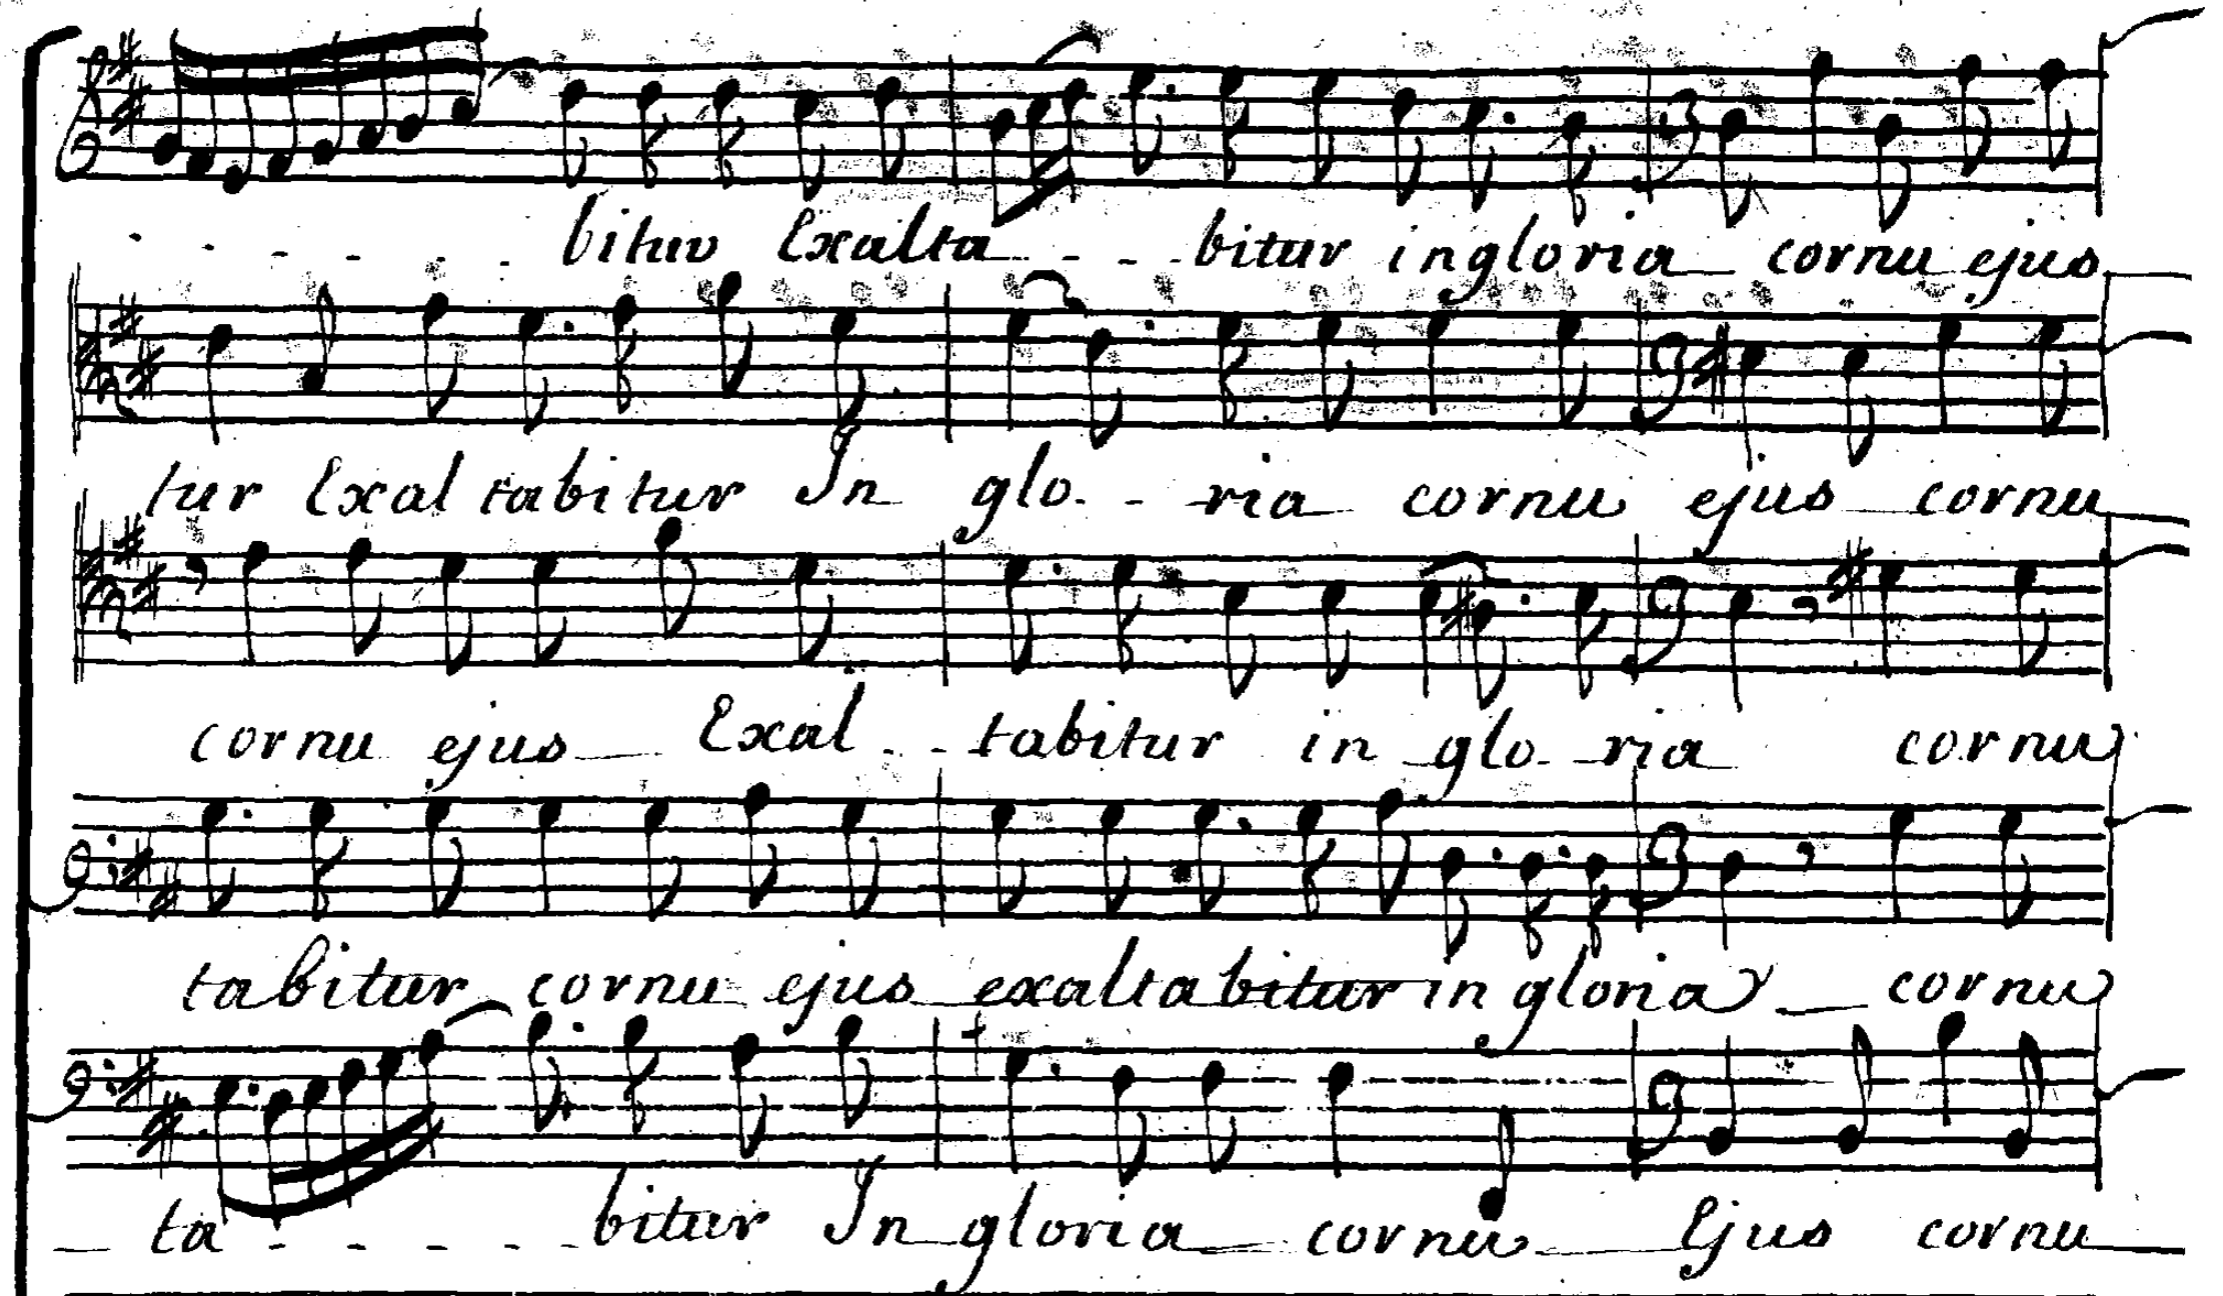 - - - - - bitur Exalta - - - bitur in gloria cornu ejus
tur Exaltabitur In glo - - ria cornu ejus cornu
cornu ejus Exal - - tabitur in glo - ria cornu
tabitur cornu ejus exaltabitur in gloria cornu
ta - - - - - bitur In gloria cornu Ejus cornu